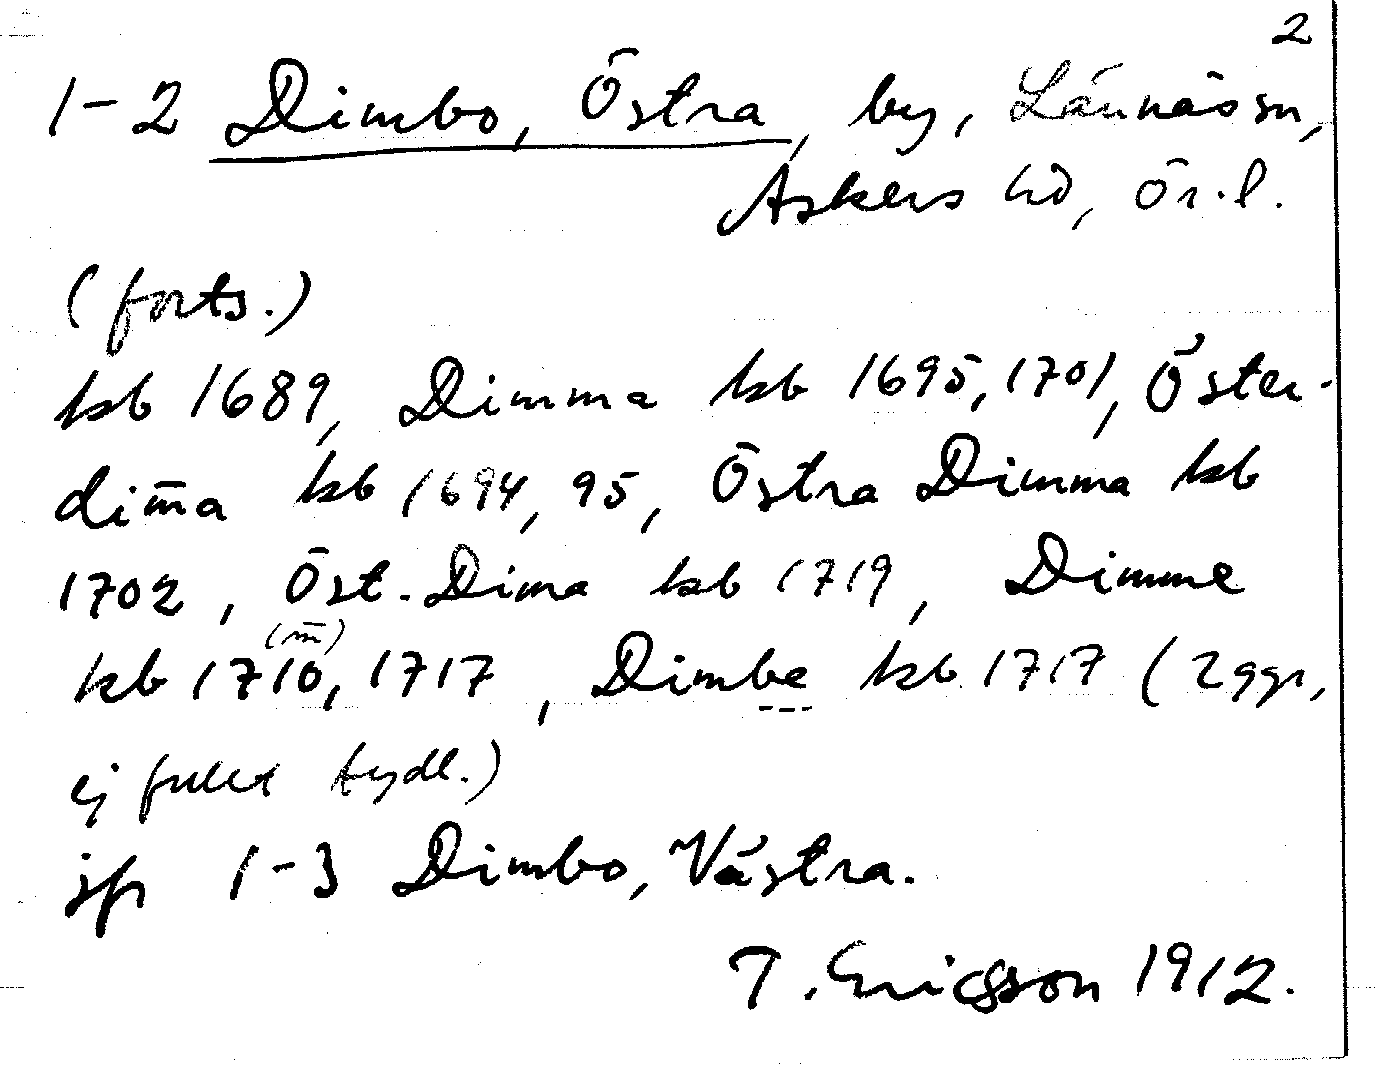 2
1-2 Dimbo, Östra, by, Lännäs sn,
Askers hd, Ör.l.
(forts.)
kb 1689, Dimma kb 1695, 1701, Öster-
dim̄a kb 1694, 95, Östra Dimma kb
1702, Öst. Dima kb 1719, Dimme
(m̄)
kb 1710, 1717, Dimbe kb 1717 (2 ggr,
ej fullt tydl.)
jfr 1-3 Dimbo, Västra.
T. Ericsson 1912.